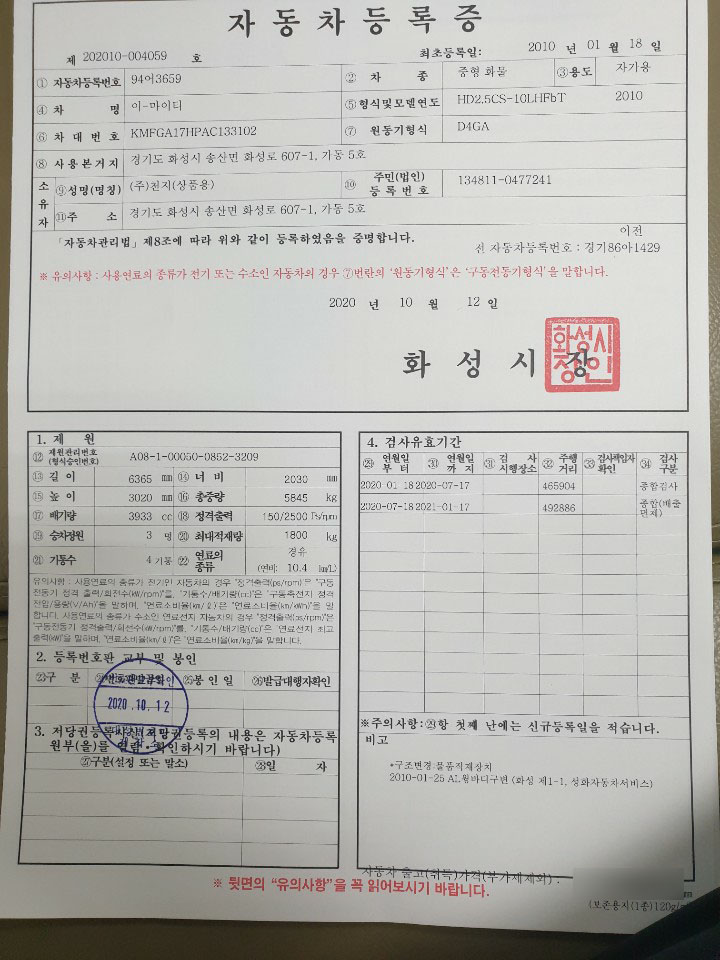 자동차등록증
제 202010-004059 호 최초등록일: 2010 년 01 월 18 일
① 자동차등록번호 94어3659 ② 차 종 중형 화물 ③용도 자가용
④ 차 명 이-마이티 ⑤형식및모델연도 HD2.5CS-10LHFbT 2010
⑥ 차 대 번 호 KMFGA17HPAC133102 ⑦ 원동기형식 D4GA
⑧ 사 용 본 거 지 경기도 화성시 송산면 화성로 607-1, 가동 5호
소유자 ⑨성명(명칭) (주)천지(상품용) ⑩ 주민(법인)등록번호 134811-0477241
⑪주 소 경기도 화성시 송산면 화성로 607-1, 가동 5호
「자동차관리법」 제8조에 따라 위와 같이 등록하였음을 증명합니다.
이전
전 자동차등록번호 : 경기86아1429
※ 유의사항 : 사용연료의 종류가 전기 또는 수소인 자동차의 경우 ⑦번란의 '원동기형식'은 '구동전동기형식'을 말합니다.
2020 년 10 월 12 일
화 성 시 장
화성시
장인
1. 제 원
⑫ 제원관리번호 (형식승인번호) A08-1-00050-0852-3209
⑬ 길 이 6365 mm ⑭ 너 비 2030 mm
⑮ 높 이 3020 mm ⑯ 총중량 5845 kg
⑰ 배기량 3933 cc ⑱ 정격출력 150/2500 Ps/rpm
⑲ 승차정원 3 명 ⑳ 최대적재량 1800 kg
㉑ 기통수 4 기통 ㉒ 연료의 종류 경유 (연비: 10.4 km/L)
유의사항 : 사용연료의 종류가 전기인 자동차의 경우 "정격출력(ps/rpm)"은 "구동
전동기 정격 출력/회전수(kW/rpm)"을, "기통수/배기량(cc)"은 "구동축전지 정격
전압/용량(V/Ah)"을 말하며, "연료소비율(km/ℓ)"은 "연료소비율(km/kWh)"을 말
합니다. 사용연료의 종류가 수소인 연료전지 자동차의 경우 "정격출력(ps/rpm)"은
"구동전동기 정격출력/회전수(kW/rpm)"를, "기통수/배기량(cc)"은 연료전지 최고
출력(kW)"을 말하며, "연료소비율(km/ℓ)"은 "연료소비율(km/kg)"을 말합니다.
2. 등록번호판 교부 및 봉인
㉓구 분 ㉕봉 인 일 ㉖발급대행자확인
2020.10.12
3. 저당권등록사실(저당권등록의 내용은 자동차등록
원부(을)를 열람·확인하시기 바랍니다)
㉗구분(설정 또는 말소) ㉘일 자
4. 검사유효기간
㉙ 연월일 부터 ㉚ 연월일 까지 ㉛ 검 사 시행장소 ㉜ 주행 거리 ㉝ 검사책임자 확인 ㉞ 검사 구분
2020-01-18 2020-07-17 465904 종합검사
2020-07-18 2021-01-17 492886 종합(매출 면제)
※주의사항:㉙항 첫째 난에는 신규등록일을 적습니다.
비고
*구조변경:물품적재장치
2010-01-25 AL윙바디구변 (화성 제1-1, 성화자동차서비스)
자동차 출고(취득)가격(부가세제외) :
※ 뒷면의 "유의사항"을 꼭 읽어보시기 바랍니다.
(보존용지(1종)120g/